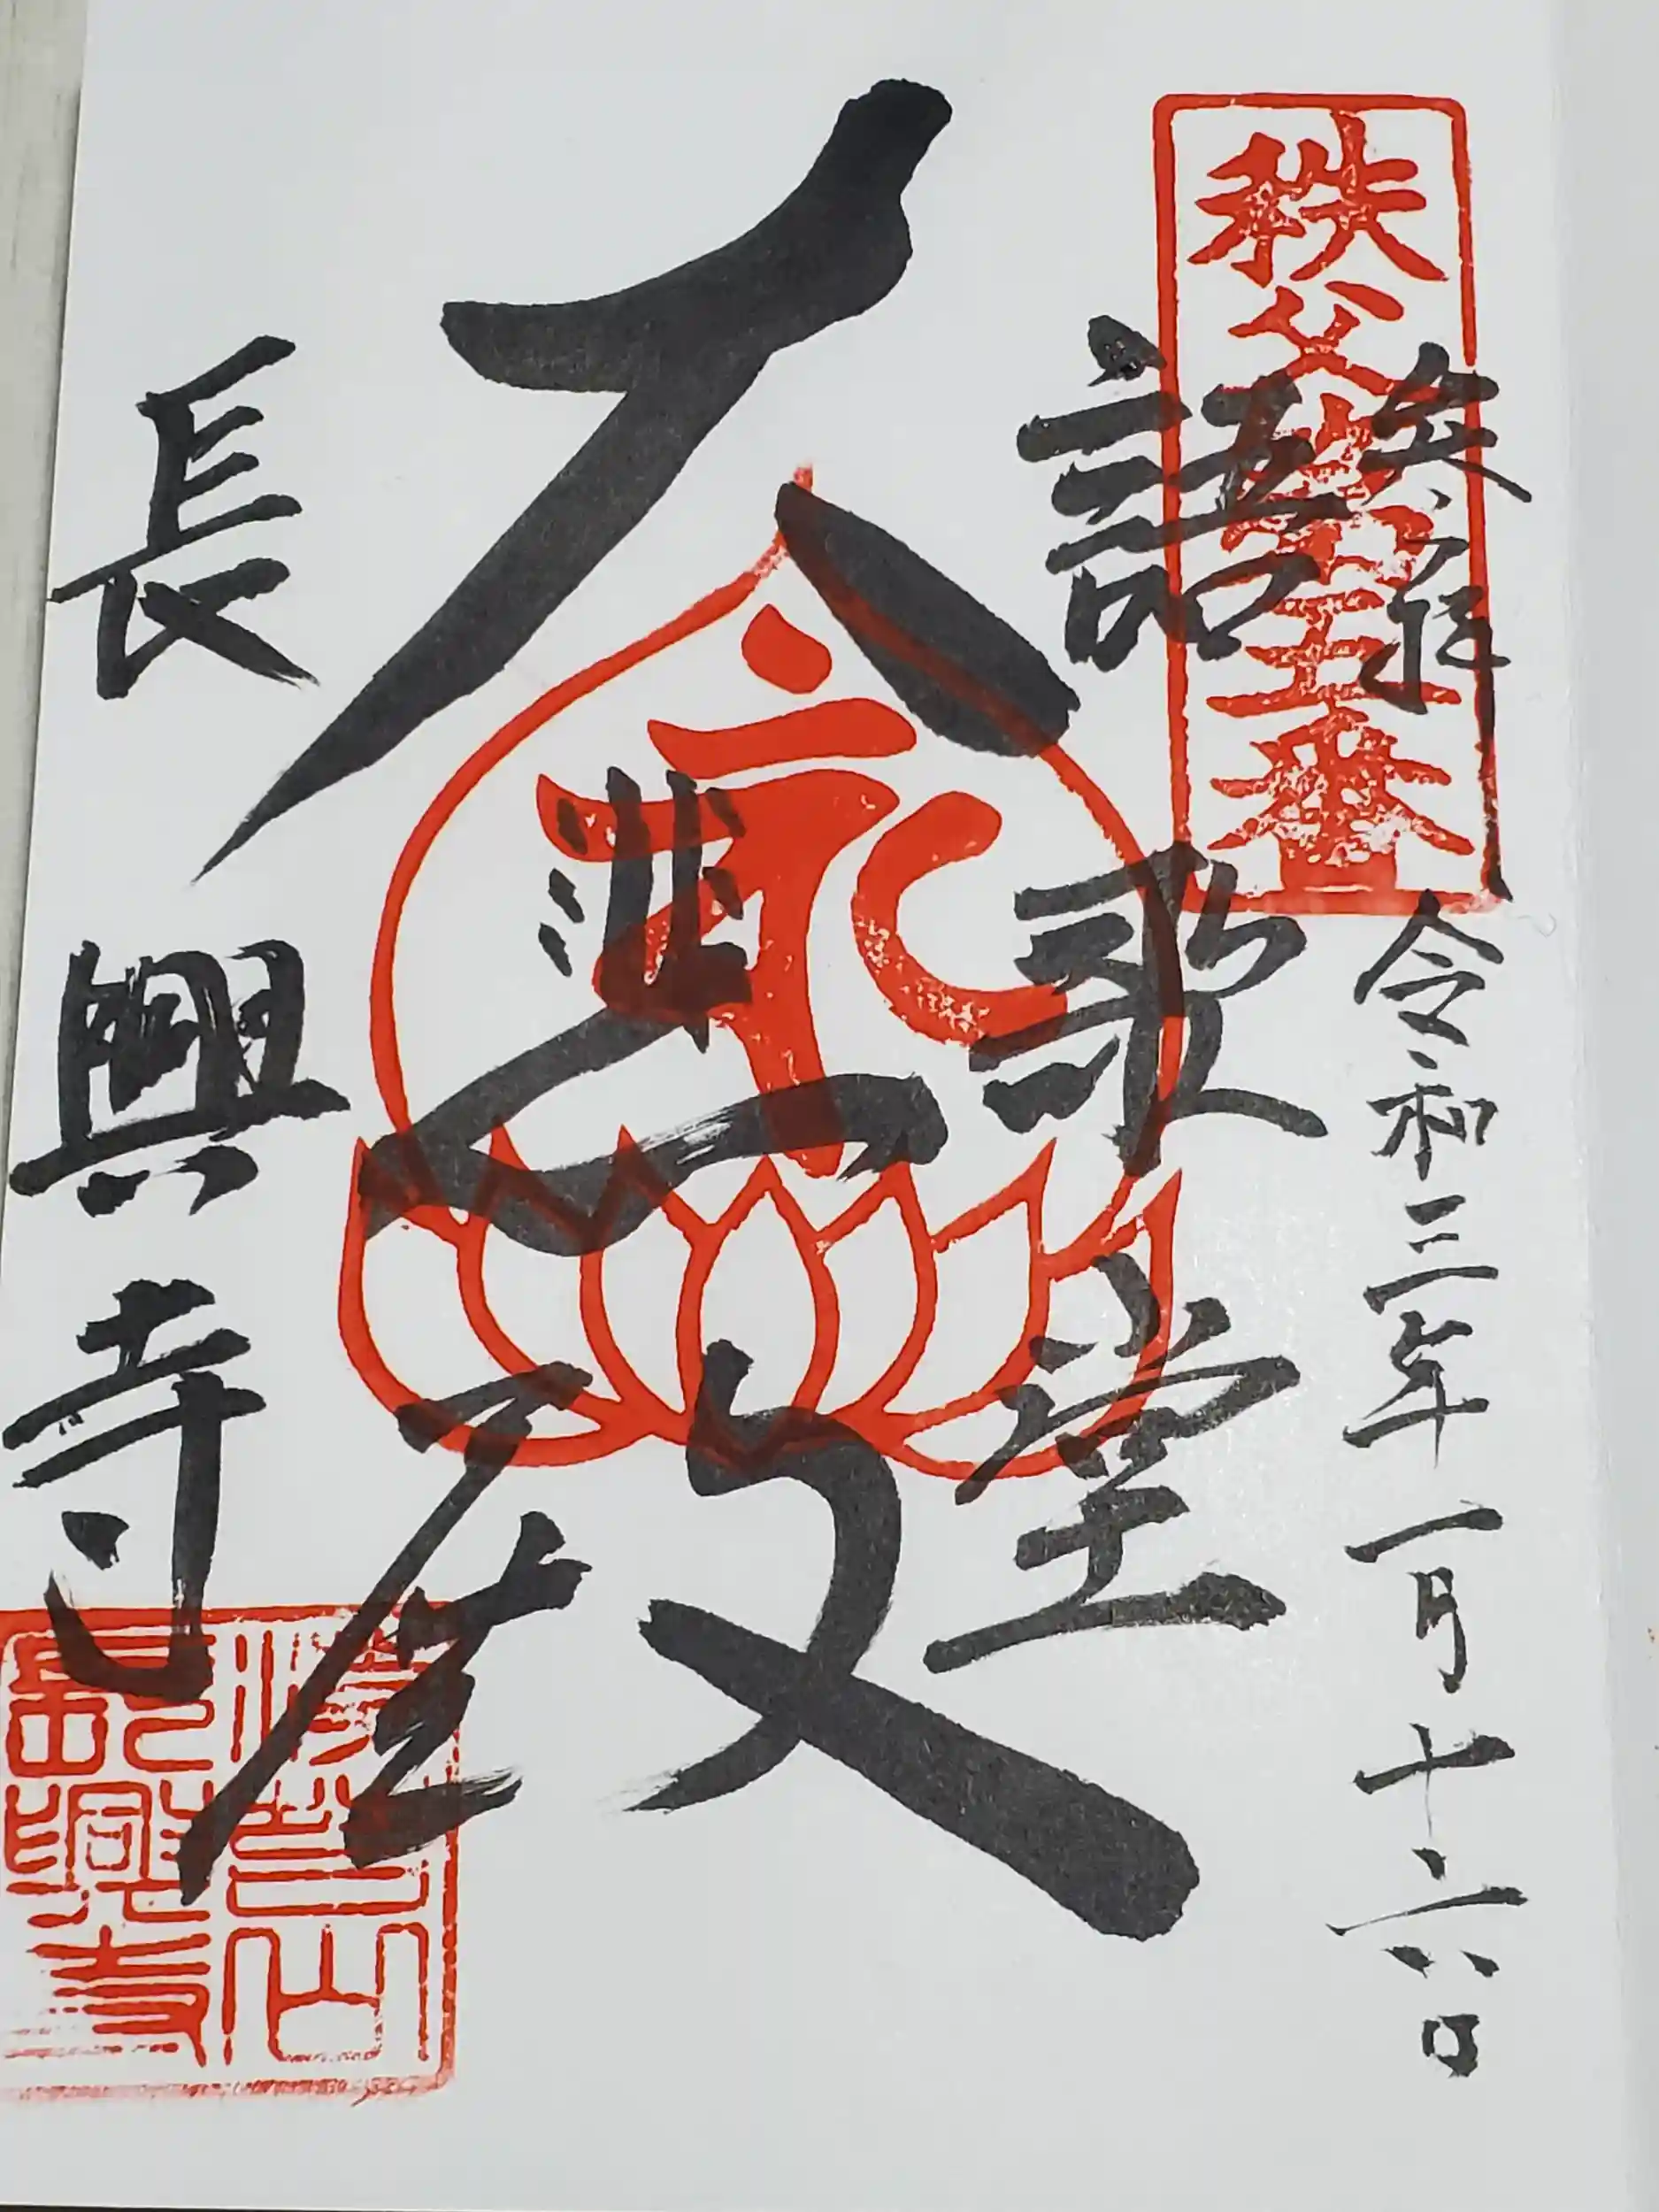 秩父
五番
奉拝　令和三年一月十六日
語歌堂
大悲殿
長興寺
長興寺